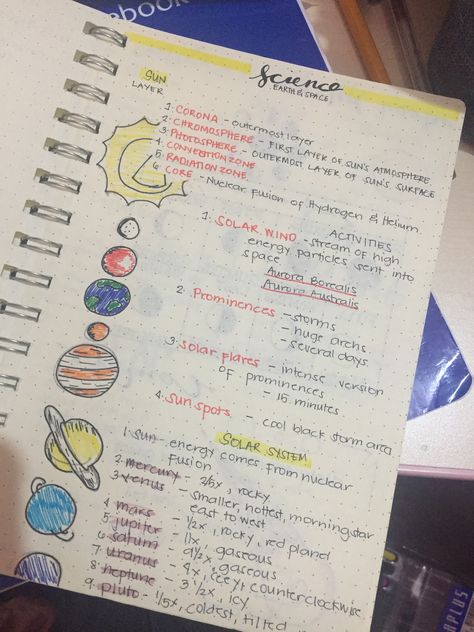 ebook
Science
EARTH & SPACE
SUN
LAYER
1. CORONA - outermost layer
2. CHROMOSPHERE - FIRST LAYER OF SUN'S ATMOSPHERE.
3. PHOTOSPHERE - OUTERMOST LAYER OF SUN'S SURFACE
4. CONVECTION ZONE
5. RADIATION ZONE
6. CORE - Nuclear fusion of Hydrogen & Helium
ACTIVITIES
1. SOLAR WIND - stream of high
energy particles sent into
space
Aurora Borealis
Aurora Australis
2. Prominences - storms
- hugs archs
- several days
3. solar flares - intense version
of prominences
- 15 minutes
4. Sun spots - cool black storm area
SOLAR SYSTEM
1. Sun - energy comes from nuclear
fusion
2. mercury - 2/5x, rocky
3. venus - smaller, hottest, morning star
east to west
4. mars - 1/2x, rocky, red planet
5. jupiter - 11x, gaseous
6. saturn - 9 1/2x, gaseous
7. uranus - 4x, icy, counterclockwise
8. neptune - 3 1/2x, icy
9. pluto - 1/5x, coldest, tilted